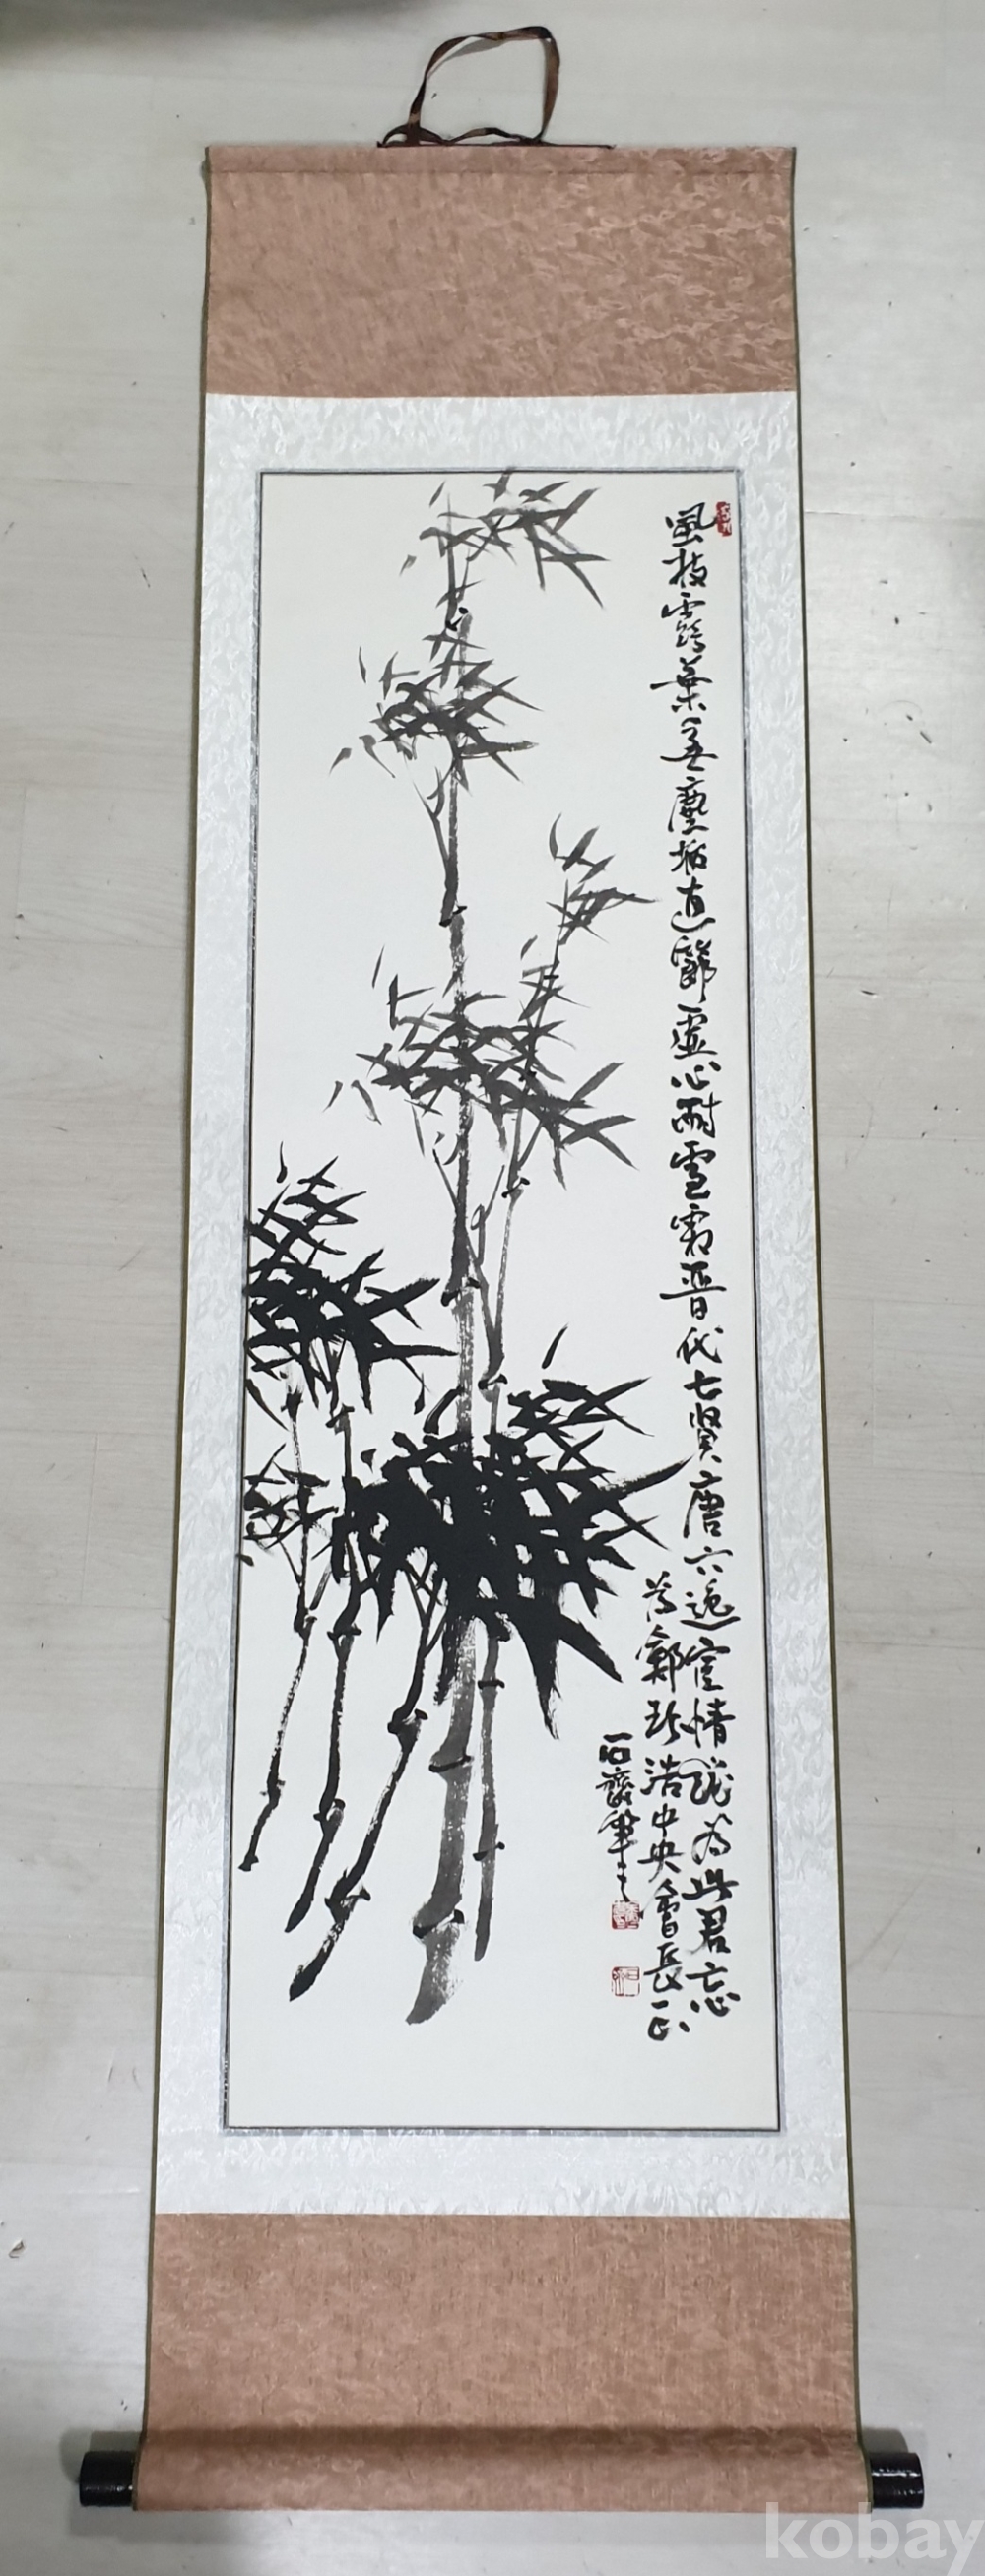 風枝露葉無塵垢直節虛心耐雪霜晉代七賢唐六逸宦情總為此君忘
為鄭珍浩中央會長正
石齋筆
kobay